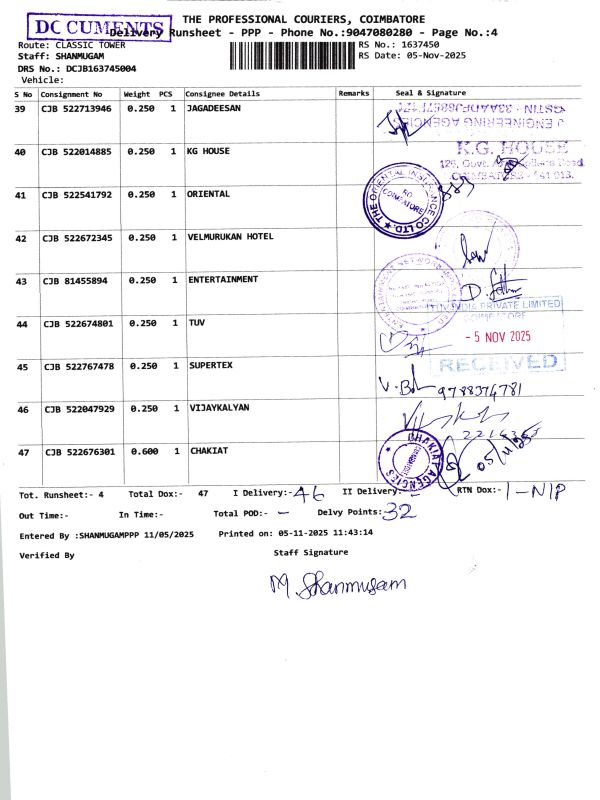 DOCUMENTS
THE PROFESSIONAL COURIERS, COIMBATORE
Delivery Runsheet - PPP - Phone No.:9047080280 - Page No.:4
Route: CLASSIC TOWER RS No.: 1637450
Staff: SHANMUGAM RS Date: 05-Nov-2025
DRS No.: DCJB163745004
Vehicle:
S No Consignment No Weight PCS Consignee Details Remarks Seal & Signature
39 CJB 522713946 0.250 1 JAGADEESAN
J ENGINEERING AGENCIES
40 CJB 522014885 0.250 1 KG HOUSE
K.G. HOUSE
COIMBATORE - 641 018.
41 CJB 522541792 0.250 1 ORIENTAL
THE ORIENTAL INSURANCE CO LTD.
RO.
COIMBATORE
42 CJB 522672345 0.250 1 VELMURUKAN HOTEL
43 CJB 81455894 0.250 1 ENTERTAINMENT
44 CJB 522674801 0.250 1 TUV
INDIA PRIVATE LIMITED
COIMBATORE
- 5 NOV 2025
RECEIVED
45 CJB 522767478 0.250 1 SUPERTEX
9788374781
46 CJB 522047929 0.250 1 VIJAYKALYAN
47 CJB 522676301 0.600 1 CHAKIAT
AGENCIES
05/11/25
Tot. Runsheet:- 4 Total Dox:- 47 I Delivery:- 46 II Delivery:- - RTN Dox:- 1 - N/P
Out Time:- In Time:- Total POD:- - Delvy Points:- 32
Entered By :SHANMUGAMPPP 11/05/2025 Printed on: 05-11-2025 11:43:14
Verified By Staff Signature
M. Shanmugam